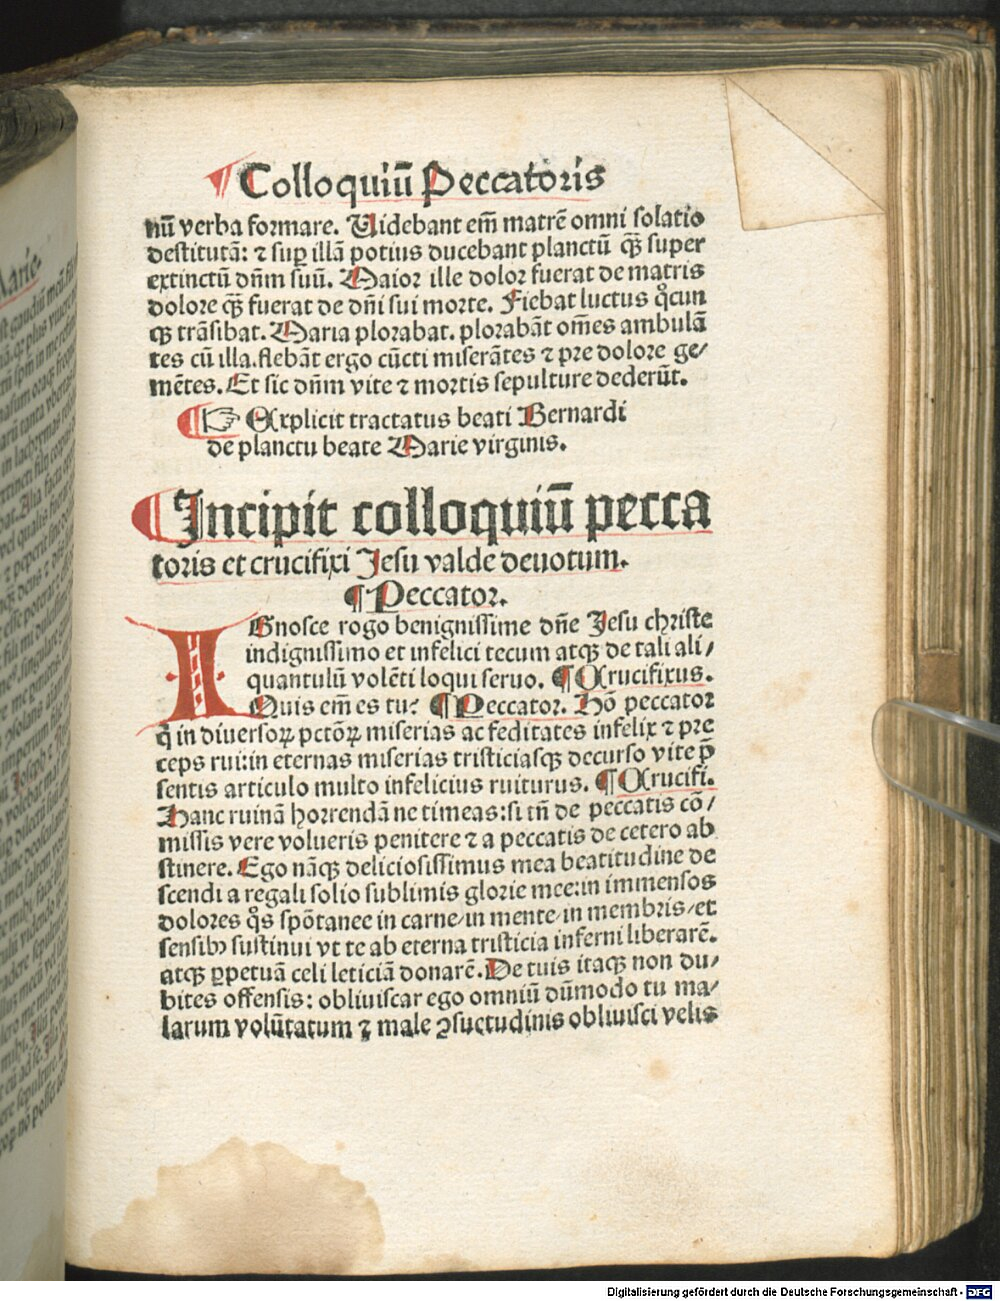 ¶ Colloquiū Peccatoris
nū verba formare. Uidebant em̄ matrē omni solatio
destitutā: ⁊ sup̱ illā potius ducebant planctū qꝫ̄ super
extinctū dn̄m suū. Maior ille dolor fuerat de matris
dolore qꝫ̄ fuerat de dn̄i sui morte. Fiebat luctus qͦcun
qꝫ trāsibat. Maria plorabat. plorabāt om̄es ambulā
tes cū illa. flebāt ergo cūcti miserātes ⁊ pre dolore ge⸗
mētes. Et sic dn̄m vite ⁊ mortis sepulture dederūt.
¶ ☞ Explicit tractatus beati Bernardi
de planctu beate Marie virginis.
¶ Incipit colloquiū pecca
toris et crucifixi Jesu valde deuotum.
¶ Peccator.
IGnosce rogo benignissime dn̄e Jesu christe
indignissimo et infelici tecum atqꝫ de tali ali⸗
quantulū volēti loqui seruo. ¶ Crucifixus.
Quis em̄ es tu? ¶ Peccator. Hō peccator
q̄ in diuersoꝝ pctōꝝ miserias ac feditates infelix ⁊ pre
ceps rui: in eternas miserias tristiciasqꝫ decurso vite p̄
sentis articulo multo infelicius ruiturus. ¶ Crucifi.
Hanc ruinā horrendā ne timeas: si tn̄ de peccatis cō⸗
missis vere volueris penitere ⁊ a peccatis de cetero ab
stinere. Ego nāqꝫ deliciosissimus mea beatitudine de
scendi a regali solio sublimis glorie mee: in immensos
dolores qͦs spōtanee in carne/ in mente/ in membris/ et
sensibꝫ sustinui vt te ab eterna tristicia inferni liberarē.
atqꝫ ꝑpetuā celi leticiā donarē. De tuis itaqꝫ non du⸗
bites offensis: obliuiscar ego omniū dūmodo tu ma⸗
larum volūtatum ⁊ male ꝯsuetudinis obliuisci velis
Digitalisierung gefördert durch die Deutsche Forschungsgemeinschaft - DFG